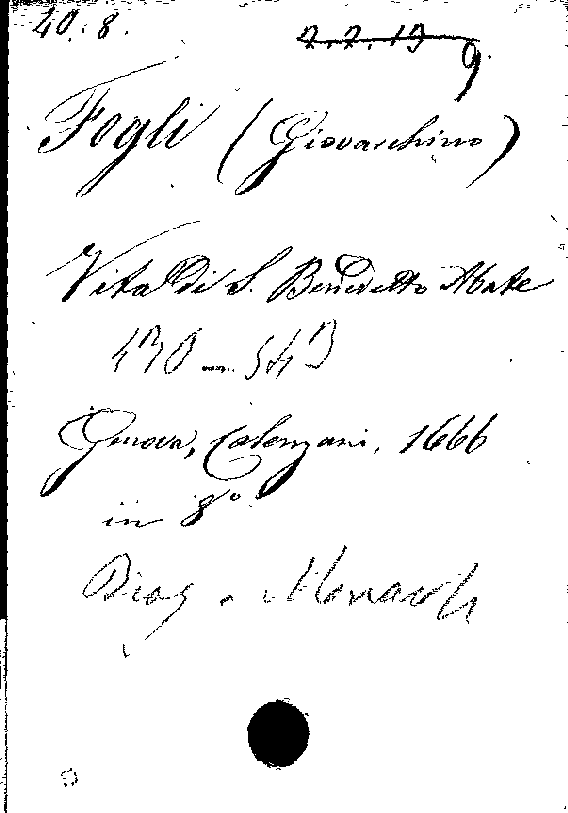 40. 8.
2.2.13
9
Fogli (Giovacchino)
Vita di S. Benedetto Abate
430 – 543
Genova, Calenzani, 1666
in 8°
Biog. Monaco